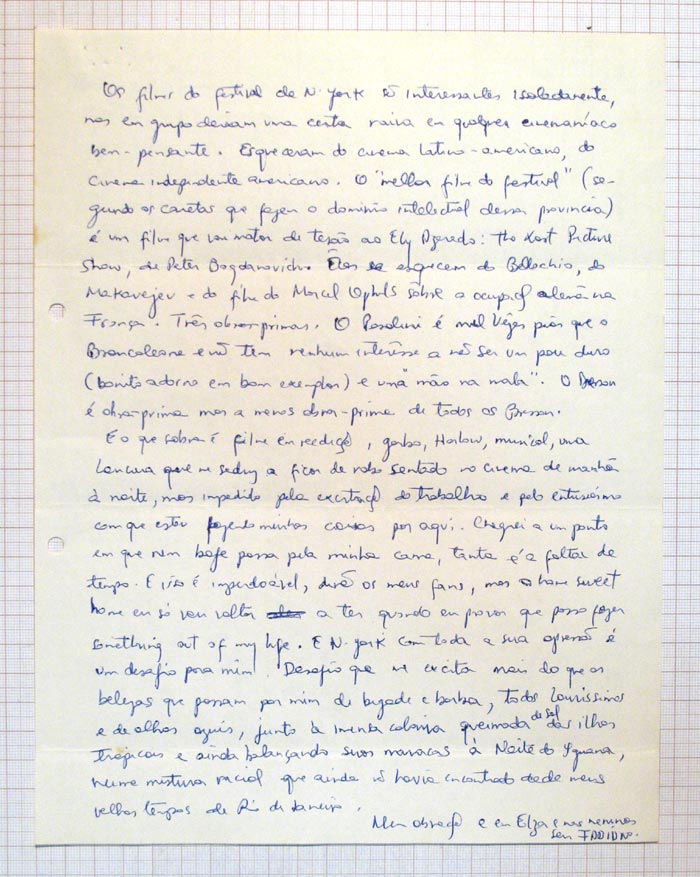 Os filmes do festival de N. York só interessantes isoladamente,
mas em grupo deixam uma certa raiva em qualquer cinemaníaco
bem-pensante. Esqueceram do cinema latino-americano, do
cinema independente americano. O "melhor film do festival" (se-
gundo os caretas que fazem o dominio intelectual dessa provincia)
é um filme que vai matar de tesão ao Ely Azeredo: The Last Picture
Show, de Peter Bogdanovich. Eles se esquecem do Bellochio, do
Makavejev e do filme do Marcel Ophuls sôbre a ocupaçã alemã na
França. Três obras-primas. O Pasolini é mil vêzes pior que o
Brancaleone e nõ tem nenhum interêsse a nõ ser um pau duro
(bonito adorno em bom exemplar) e uma "mão na mala". O Bresson
é obra-prima mas a menos obra-prima de todos os Bresson.
E o que sobra é filme em reediçã, garbo, Harlow, musical, uma
loucura que me seduz a ficar de rabo sentado no cinema de manhã
à noite, mas impedido pela excitaçã do trabalho e pelo entusiasmo
com que estou fazendo minhas coisas por aqui. Cheguei a um ponto
em que nem bofe passa pela minha cama, tanta é a falta de
tempo. E isso é imperdoável, dirão os meus fans, mas a home sweet
home eu só vou voltar a ter quando eu provar que posso fazer
something out of my life. E N. York com toda a sua opressão é
um desafio para mim. Desafio que me excita mais do que as
belezas que passam por mim de bigode e barba, todos lourissimos
e de olhos azuis, junto à imensa colonia queimada de sol das ilhas
tropicais e ainda balançando suas maracas à Noite do Iguana,
numa mistura racial que ainda nõ havia encontrado desde meus
velhos tempos de Rio de Janeiro.
Meu abraçã e em Elza e nos meninos
seu